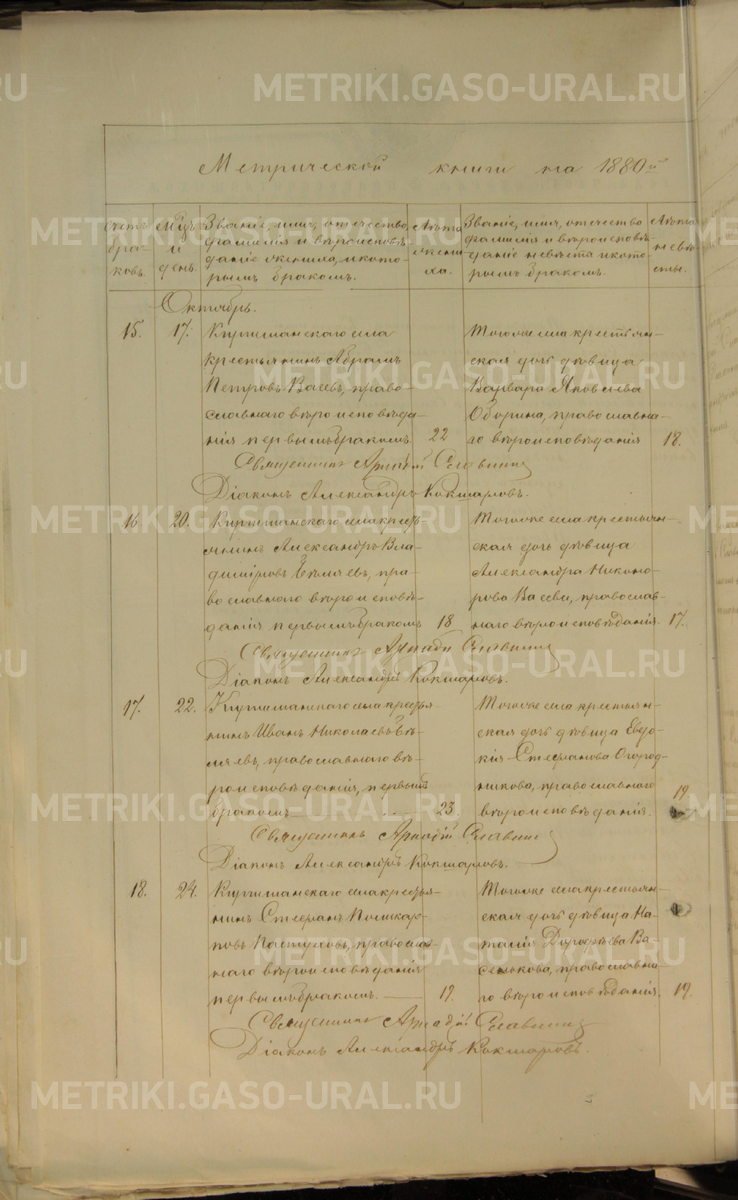 METRIKI.GASO-URAL.RU
Метрической книги на 1880й
Счетъ браковъ.
Мѣцъ и день.
Званіе, имя, отечество,
фамилія и вѣроисповѣ-
даніе жениха, и кото-
рымъ бракомъ.
Лѣта
жени-
ха.
Званіе, имя, отечество
фамилія и вѣроисповѣ-
даніе невѣсты и кото-
рымъ бракомъ.
Лѣта
невѣ-
сты.
Октябрь.
15. 17.
села
крестьянинъ Абрамъ
Петровъ Васевъ, право-
славнаго вѣроисповѣда-
нія первымъ бракомъ. 22
Тогоже села крестьян-
ская дочь дѣвица
Варвара Яковлева
Оборина, православна-
го вѣроисповѣданія 18.
Священникъ Аркадій Славнинъ
Діаконъ Александръ Кокшаровъ.
16 20.
села кресть-
янинъ Александръ Вла-
диміровъ пра-
вославнаго вѣроисповѣ-
данія первымъ бракомъ 18.
Тогоже села крестьян-
ская дочь дѣвица
Александра Никоно-
рова Васева, православ-
наго вѣроисповѣданія. 17.
Священникъ Аркадій Славнинъ
Діаконъ Александръ Кокшаровъ.
17. 22.
села крестья-
нинъ Иванъ Николаевъ Бѣ-
ляевъ, православнаго вѣ-
роисповѣданія, первымъ
бракомъ 23.
Тогоже села крестьян-
ская дочь дѣвица Евдо-
кія Стефанова Огород-
никова, православнаго
вѣроисповѣданія. 19
Священникъ Аркадій Славнинъ
Діаконъ Александръ Кокшаровъ.
18. 24.
села крестья-
нинъ Стефанъ Поликар-
повъ Пастуховъ, православ-
наго вѣроисповѣданія
первымъ бракомъ. 19.
Тогоже села крестьян-
ская дочь дѣвица На-
талія Дорофѣева Ва-
сенькова, православна-
го вѣроисповѣданія. 19.
Священникъ Аркадій Славнинъ
Діаконъ Александръ Кокшаровъ.